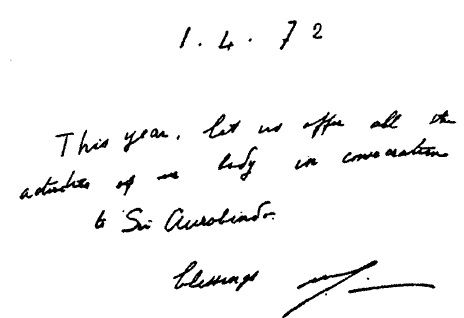 1.4.72
This year, let us offer all the
activities of our body in consecration
to Sri Aurobindo.
blessings